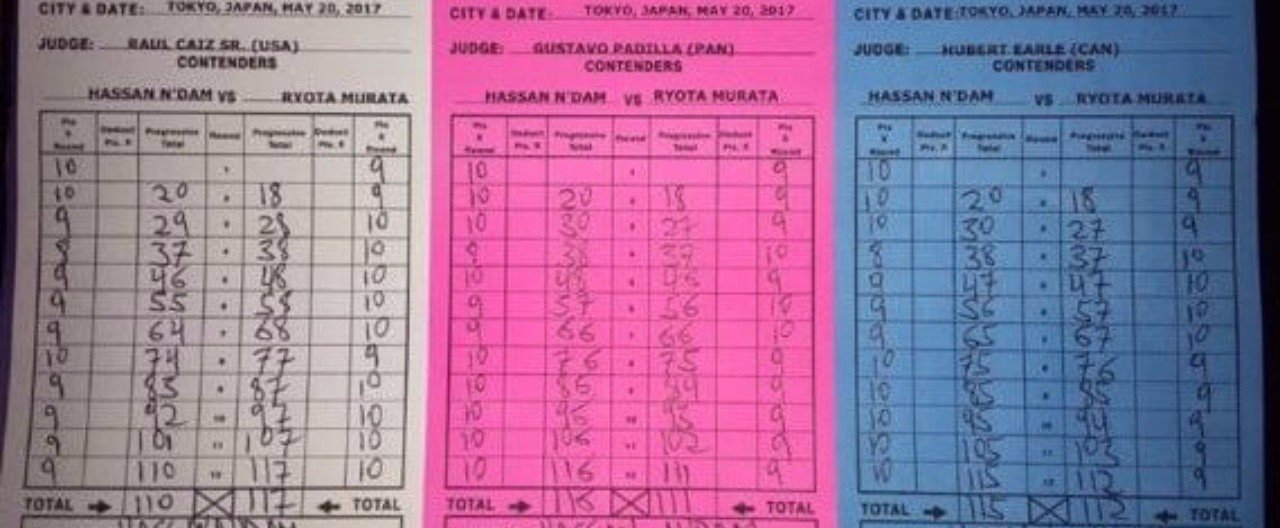 CITY & DATE: TOKYO, JAPAN, MAY 20, 2017
JUDGE: RAUL CAIZ SR. (USA)
CONTENDERS
HASSAN N'DAM VS RYOTA MURATA
Progressive Round Progressive
Total Total
10 9
10 20 18 9
9 29 28 10
8 37 38 10
9 46 48 10
9 55 58 10
9 64 68 10
10 74 77 9
9 83 87 10
9 92 97 10
9 101 107 10
9 110 117 10
TOTAL 110 117 TOTAL
CITY & DATE: TOKYO, JAPAN, MAY 20, 2017
JUDGE: GUSTAVO PADILLA (PAN)
CONTENDERS
HASSAN N'DAM VS RYOTA MURATA
Progressive Round Progressive
Total Total
10 9
10 20 18 9
10 30 27 9
8 38 37 10
10 48 46 9
9 57 56 10
9 66 66 10
10 76 75 9
10 86 84 9
10 96 93 9
10 106 102 9
10 116 111 9
TOTAL 116 111 TOTAL
CITY & DATE: TOKYO, JAPAN, MAY 20, 2017
JUDGE: HUBERT EARLE (CAN)
CONTENDERS
HASSAN N'DAM VS RYOTA MURATA
Progressive Round Progressive
Total Total
10 9
10 20 18 9
10 30 27 9
8 38 37 10
9 47 47 10
9 56 57 10
9 65 67 10
10 75 76 9
10 85 85 9
10 95 94 9
10 105 103 9
10 115 112 9
TOTAL 115 112 TOTAL